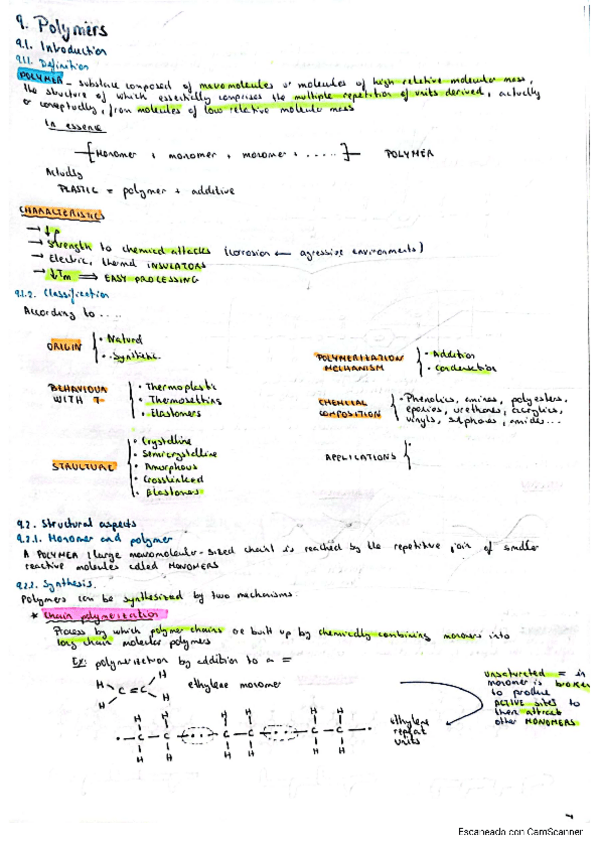 9. Polymers
9.1. Introduction
9.1.1. Definition
POLYMER - substance composed of macromolecules or molecules of high relative molecular mass,
the structure of which essentially comprises the multiple repetition of units derived, actually
or conceptually, from molecules of low relative molecular mass
In essence
[Monomer + monomer + monomer + .....] POLYMER
Actually
PLASTIC = polymer + additive
CHARACTERISTICS
→ ↓ρ
→ Strength to chemical attacks (corrosion ← agressive environments)
→ Electric, thermal INSULATORS
→ ↓Tm ⟹ EASY PROCESSING
9.1.2. Classification
According to ....
ORIGIN
· Natural
· Synthetic
POLYMERIZATION MECHANISM
· Addition
· Condensation
BEHAVIOUR WITH T
· Thermoplastic
· Thermosettins
· Elastomers
CHEMICAL COMPOSITION
· Phenolics, amines, polyesters,
epoxies, urethanes, acrylics,
vinyls, sulphones, amide...
STRUCTURE
· Crystalline
· Semicrystalline
· Amorphous
· Crosslinked
· Elastomers
APPLICATIONS
9.2. Structural aspects
9.2.1. Monomer and polymer
A POLYMER (large macromolecular-sized chain) is reached by the repetitive join of smaller
reactive molecules called MONOMERS
9.2.2. Synthesis.
Polymers can be synthesized by two mechanisms
* Chain polymerization
Process by which polymer chains are built up by chemically combining monomers into
long chain molecular polymers
Ex: polymerization by addition to a =
H H
C = C
H H
ethylene monomer
unsaturated = in
monomer is broken
to produce
ACTIVE SITES to
then attract
other MONOMERS
H H H H H H
· - C - C - ... - C - C - ... - C - C - ·
H H H H H H
ethylene
repeat
units
1
Escaneado con CamScanner